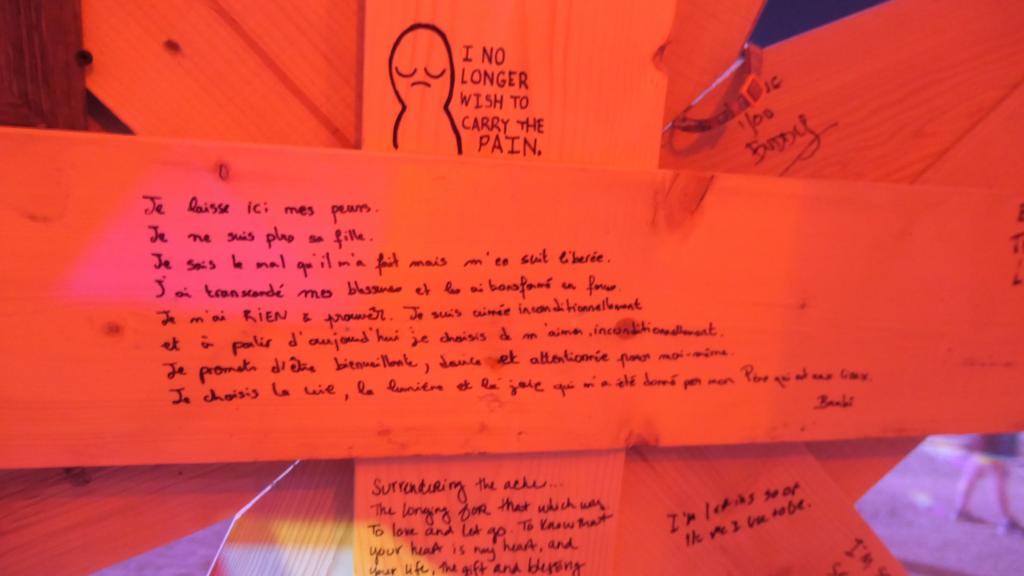 I NO
LONGER
WISH TO
CARRY THE
PAIN.
1/00
BUDDY
Je laisse ici mes peurs.
Je ne suis plus sa fille.
Je sais le mal qu'il m'a fait mais m'en suit liberée.
J'ai transcendé mes blessures et les ai transformé en force.
Je n'ai RIEN à prouver. Je suis aimée inconditionnellement
et à partir d'aujourd'hui je choisis de m'aimer, inconditionnellement.
Je promets d'être bienveillante, douce et attentionnée pour moi-même.
Je choisis la vie, la lumière et la joie qui m'a été donné par mon Père qui est aux Cieux.
Bambi
Surrendering the ache...
The longing for that which was
To love and let go. To Know that
your heart is my heart, and
your life, the gift and blessing
I'm letting go of
the me I use to be.
I'm